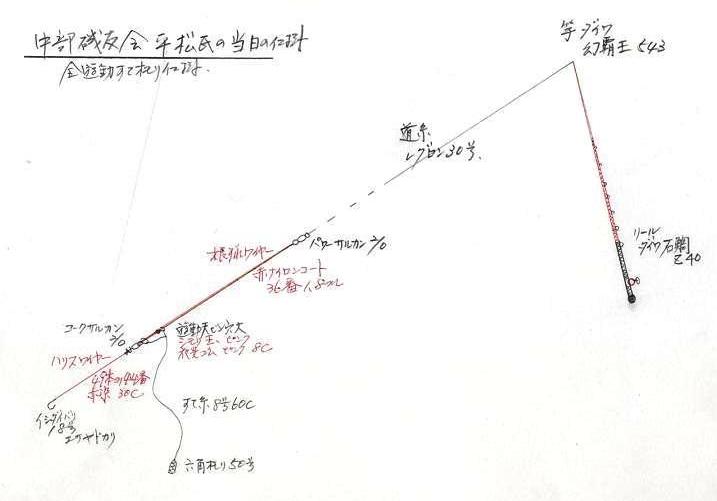 中部磯友会 平松氏の当日の仕掛
全遊動すて札り仕掛.
竿 ダイワ
幻覇王 543
道糸
レグロン30号.
リール
ダイワ 石鯛
Z40
パワーサルカン 2/0
根ズレワイヤー
赤ナイロンコート
36番 1.8ヒロ
コークサルカン
2/0
遊動天ビン穴大
シモリ玉 ピンク
夜光ゴム ピンク 8C
ハリスワイヤー
49本の 44番
赤染 30C
イシダイバリ
18号
エサヤドカリ
すて糸 8号60C
六角札り 50号